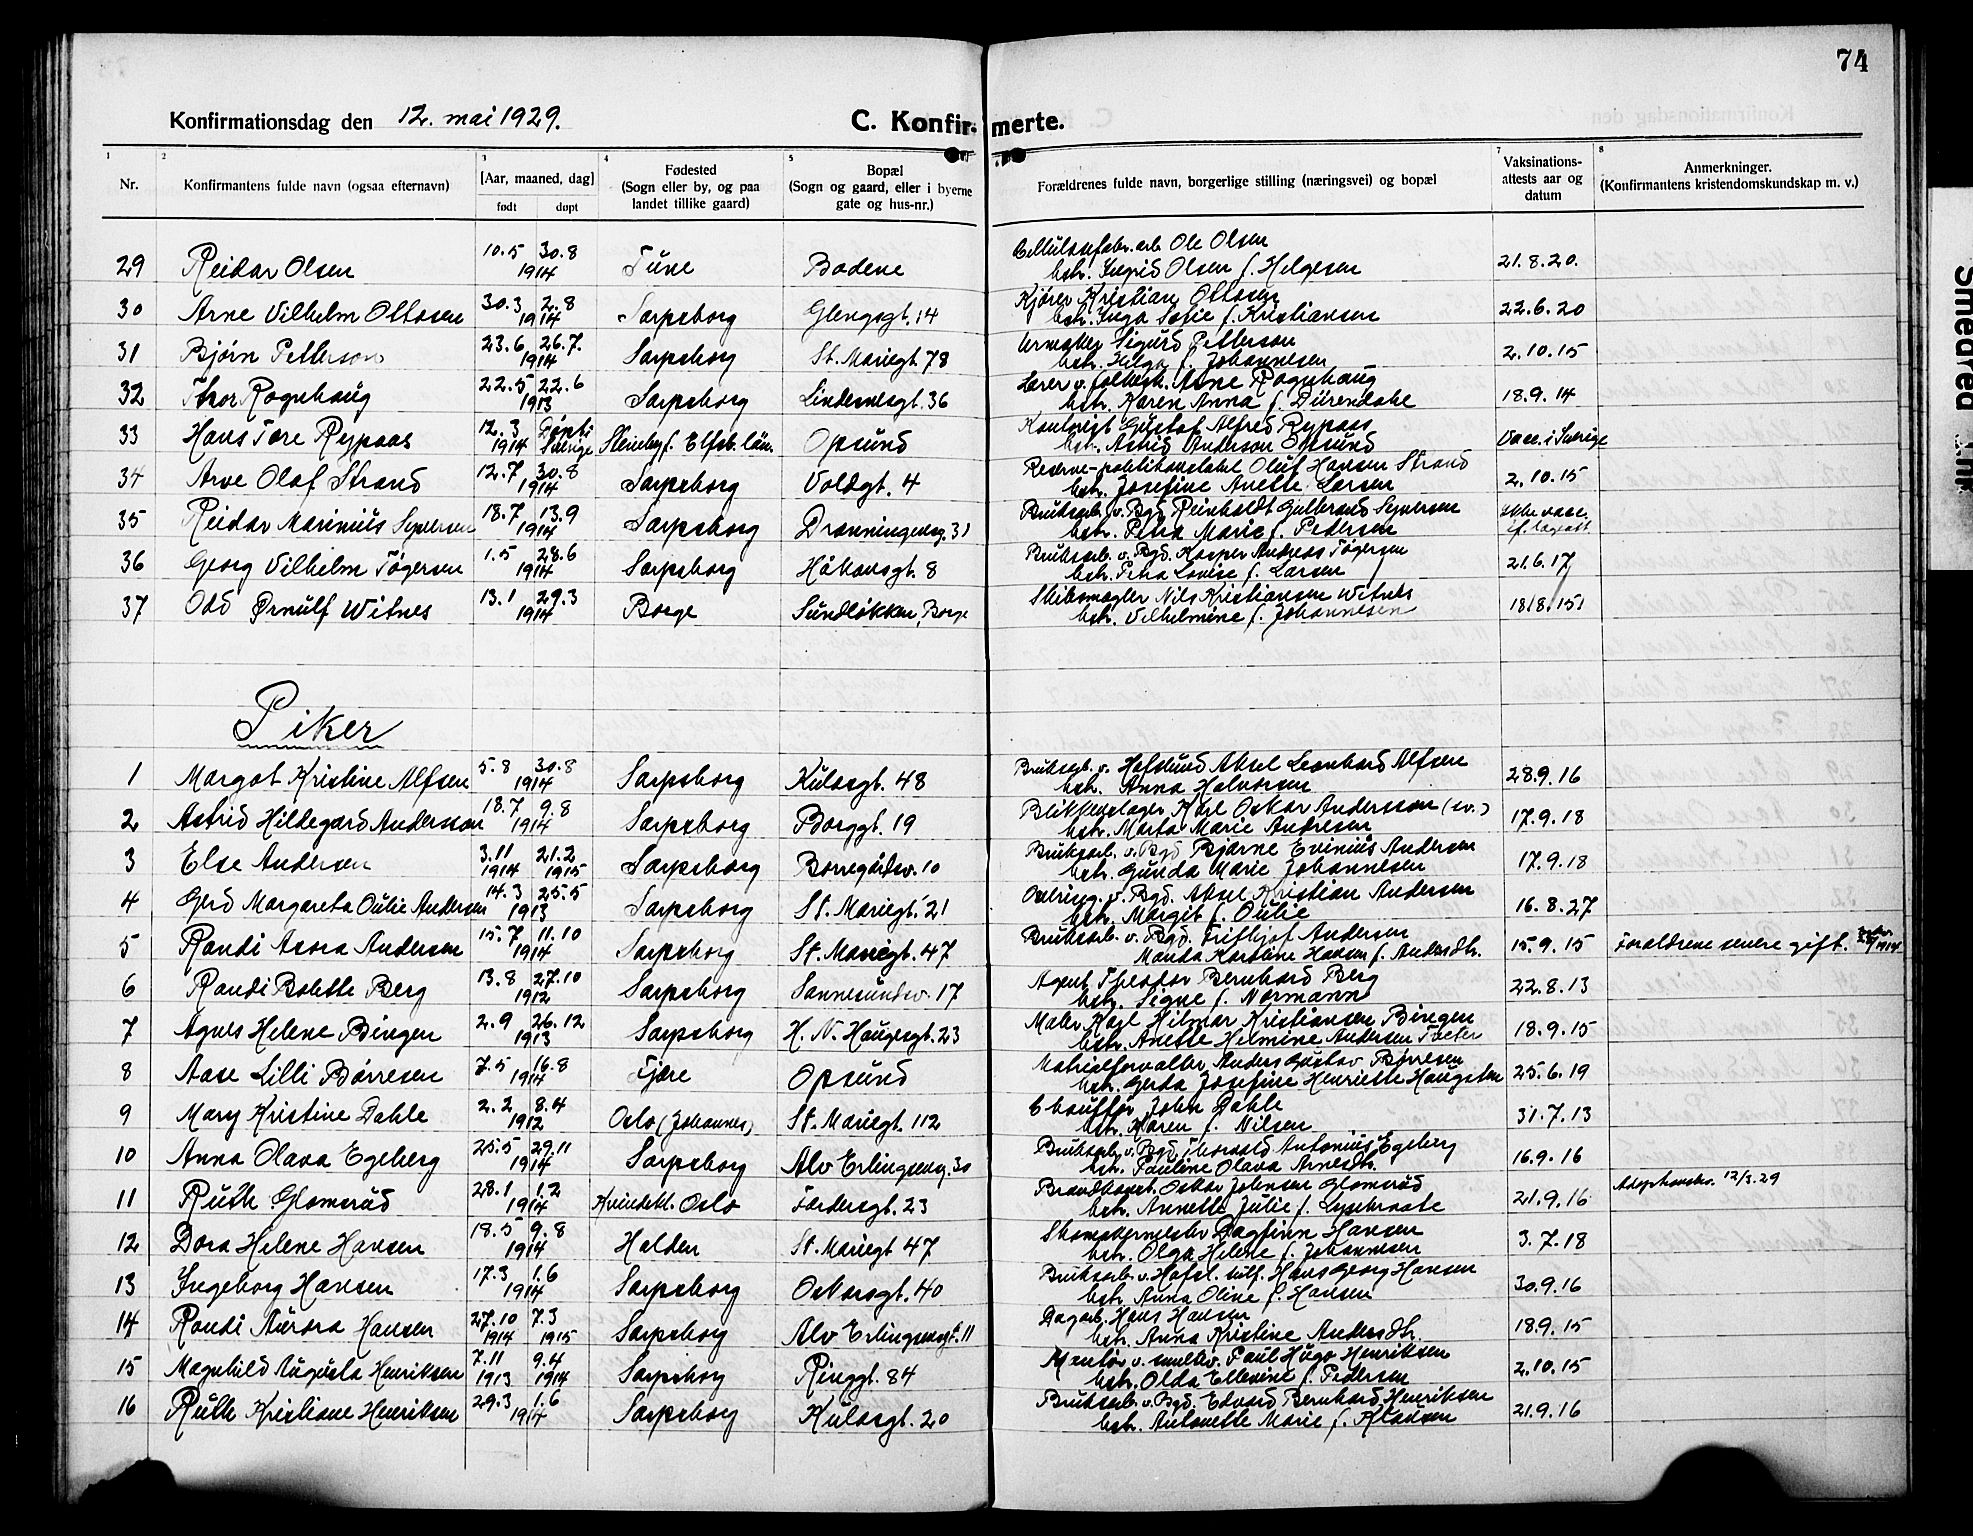 74
Konfirmationsdag den 12. mai 1929.
C. Konfirmerte.
1 2 3 4 5 7 8
Nr. Konfirmantens fulde navn (ogsaa efternavn) [Aar, maaned, dag] født døpt Fødested (Sogn eller by, og paa landet tillike gaard) Bopæl (Sogn og gaard, eller i byerne gate og hus-nr.) Forældrenes fulde navn, borgerlige stilling (næringsvei) og bopæl Vaksinations-attests aar og datum Anmerkninger. (Konfirmantens kristendomskundskap m. v.)
29 Reidar Olsen 10.5 30.8 1914 Tune Bodene Cellulosefabr. arb. Ole Olsen hstr. Ingrid Olsen f. Helgesen 21.8.20.
30 Arne Vilhelm Ottosen 30.3 2.8 1914 Sarpsborg Glengsgt. 14 Kjører Kristian Ottosen hstr. Inga Sofie f. Kristiansen 22.6.20
31 Bjørn Petterson 23.6 26.7. 1914 Sarpsborg St. Mariegt. 78 Urmaker Sigurd Petterson hstr. Helga f. Johannesen 2.10.15
32 Thor Rognhaug 22.5 22.6 1913 Sarpsborg Lindemesgt. 36 Lærer v. folkesk. Arne Rognhaug hstr. Karen Anna f. 18.9.14
33 Hans Tore Rypaas 12.3 1914 Døpt i Sverige Steneby f. Elfsb. län. Opsund Gustaf Alfred Rypass hstr. Astrid Anderson Opsund Vacc. i Sverige
34 Arve Olaf Strand 12.7 30.8 1914 Sarpsborg Voldgt. 4 Reserve-politikonstabel Oluf Hansen Strand hstr. Josefine Anette Larsen 2.10.15
35 Reidar Marinius Syversen 18.7 13.9 1914 Sarpsborg Dronningensg. 31 Bruksarb. v. Bgd. Reinholdt Gulbrand Syversen hstr. Petra Marie f. Pedersen Ikke vacc. if. lægeatt
36 Georg Vilhelm Tøgersen 1.5 28.6 1914 Sarpsborg Håkonsgt. 8 Bruksarb. v. Bgd. Kasper Andreas Tøgersen hstr. Petra Lovise f. Larsen 21.6.17
37 Odd Ørnulf Witnes 13.1 29.3 1914 Borge Sundløkken, Borge Skibsmegler Nils Kristiansen Witnes hstr. Vilhelmine f. Johannesen 18.8.15
Piker
1 Margot Kristine Alfsen 5.8 30.8 1914 Sarpsborg Kulåsgt. 48 Bruksarb. v. Hafslund Aksel Leonhard Alfsen hstr. Anna Halvorsen 28.9.16
2 Astrid Hildegard Anderson 18.7 9.8 1914 Sarpsborg Borggt. 19 Blikkenslager Karl Oskar Andersson (sv.) hstr. Marta Marie Andresen 17.9.18
3 Else Andersen 3.11 1914 21.2 1915 Sarpsborg Borregårdsv. 10 Bruksarb. v. Bgd Bjarne Evinius Andersen hstr. Gunda Marie Johannesen 17.9.18
4 Gerd Margareta Oulie Andersen 14.3 25.5 1913 Sarpsborg St. Mariegt. 21 v. Bgd. Aksel Kristian Andersen hstr. Margit f. Oulie 16.8.27
5 Randi Asora Andersen 15.7 11.10 1914 Sarpsborg St. Mariegt. 47 Bruksarb. v. Bgd. Fritjof Andersen Manda Karoline Hansen f. Andersdtr. 15.9.15 Forældrene senere gift. 1914
6 Randi Bolette Berg 13.8 27.10 1912 Sarpsborg Sannesundsv. 17 Agent Theodor Bernhard Berg hstr. Signe f. Normann 22.8.13
7 Agnes Helene Bingen 2.9 26.12 1913 Sarpsborg H. N. Haugesgt. 23 Maler Karl Hilmar Kristiansen Bingen hstr. Anette Helmine Andersen Tveter 18.9.15
8 Aase Lilli Børresen 7.5 16.8 1914 Fjære Opsund Matrielforvalter Anders Gustav Børresen hstr. Gerda Josefine Henriette Haugsten 25.6.19
9 Mary Kristine Dahle 2.2 8.4 1912 Oslo (Johannes) St. Mariegt. 112 Chauffør John Dahle hstr. Karen f. Nilsen 31.7.13
10 Anna Olava Egeberg 25.5 29.11 1914 Sarpsborg Alv Erlingsensg. 30 Bruksarb. v. Bgd. Thorvald Antonius Egeberg hstr. Pauline Olava Arnesdtr. 16.9.16
11 Ruth Glomsrud 28.1 1.2 1914 Kvindekl. Oslo Fordersgt. 23 Brandkonst. Oskar Johnsen Glomsrud hstr. Annette Julie f. 21.9.16 Adoptionsbr. 12/3.29
12 Dora Helene Hansen 18.5 9.8 1914 Halden St. Mariegt 47 Skomakermester Dagfinn Hansen hstr. Olga Helene f. Johannesen 3.7.18
13 Ingeborg Hansen 17.3 1.6 1914 Sarpsborg Oskarsgt. 40 Bruksarb. v. Hafsl. sulf. Hans Georg Hansen hstr Anna Oline f. Hansen 30.9.16
14 Randi Aurora Hansen 27.10 1914 7.3 1915 Sarpsborg Alv Erlingsensgt. 11 Dagarb. Hans Hansen hstr. Anna Kristine Andersdtr. 18.9.15
15 Magnhild Augusta Henriksen 7.11 1913 9.4 1914 Sarpsborg Ringgt. 84 Montør v. smeltev. Paul Hugo Henriksen hstr. Olda Ellevine f. Pedersen 2.10.15
16 Ruth Kristiane Henriksen 29.3 1.6 1914 Sarpsborg Kulåsgt. 20 Bruksarb. v. Bgd. Edvard Bernhard Henriksen hstr. Antonette Marie f. Kladsen 21.9.16